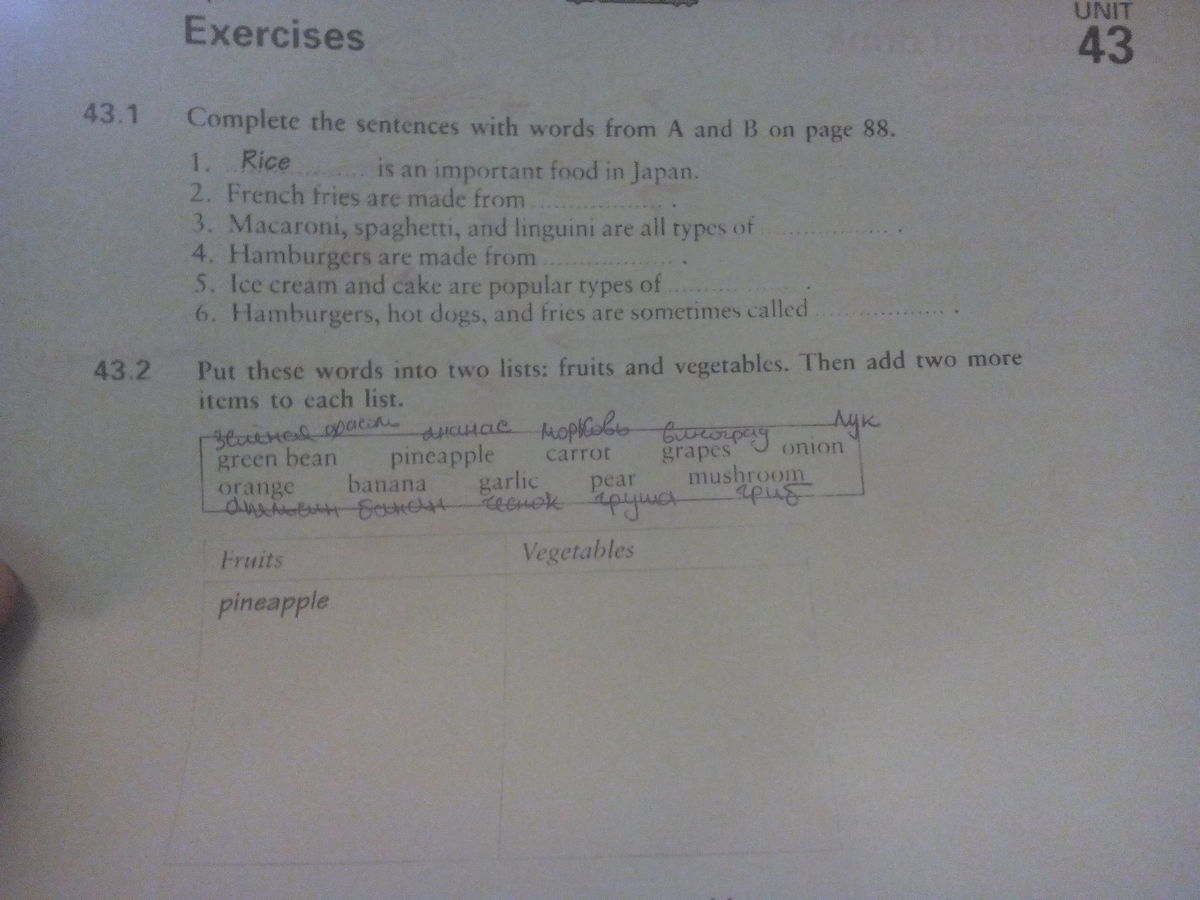 Exercises
UNIT
43
43.1 Complete the sentences with words from A and B on page 88.
1. Rice is an important food in Japan.
2. French fries are made from .................. .
3. Macaroni, spaghetti, and linguini are all types of .................. .
4. Hamburgers are made from .................. .
5. Ice cream and cake are popular types of .................. .
6. Hamburgers, hot dogs, and fries are sometimes called .................. .
43.2 Put these words into two lists: fruits and vegetables. Then add two more
items to each list.
зеленая фасоль ананас морковь виноград Лук
green bean pineapple carrot grapes onion
orange banana garlic pear mushroom
апельсин банан чеснок груша гриб
Fruits Vegetables
pineapple